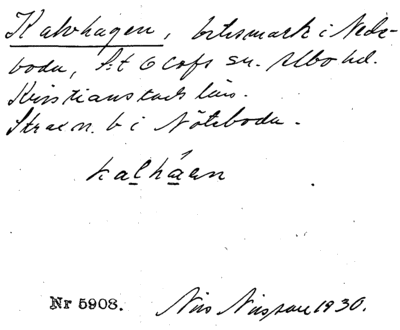 Kalvhagen, betesmark i Nöde-
boda, S:t Olofs sn. Albo hd.
Kristianstads län.
Strax n. b i Nöteboda.
kalháɜn
Nr 5908. Nils Nilsson 1930.